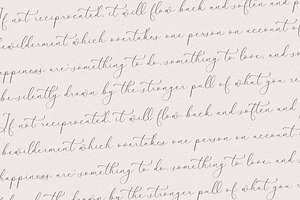 If not reciprocated, it will flow back and soften and p
bewilderment which overtakes one person on account of
happiness are something to do, something to love, and so
be silently drawn by the stronger pull of what you re
If not reciprocated, it will flow back and soften and
bewilderment which overtakes one person on account
happiness are something to do, something to love, and
be silently drawn by the stronger pull of what you